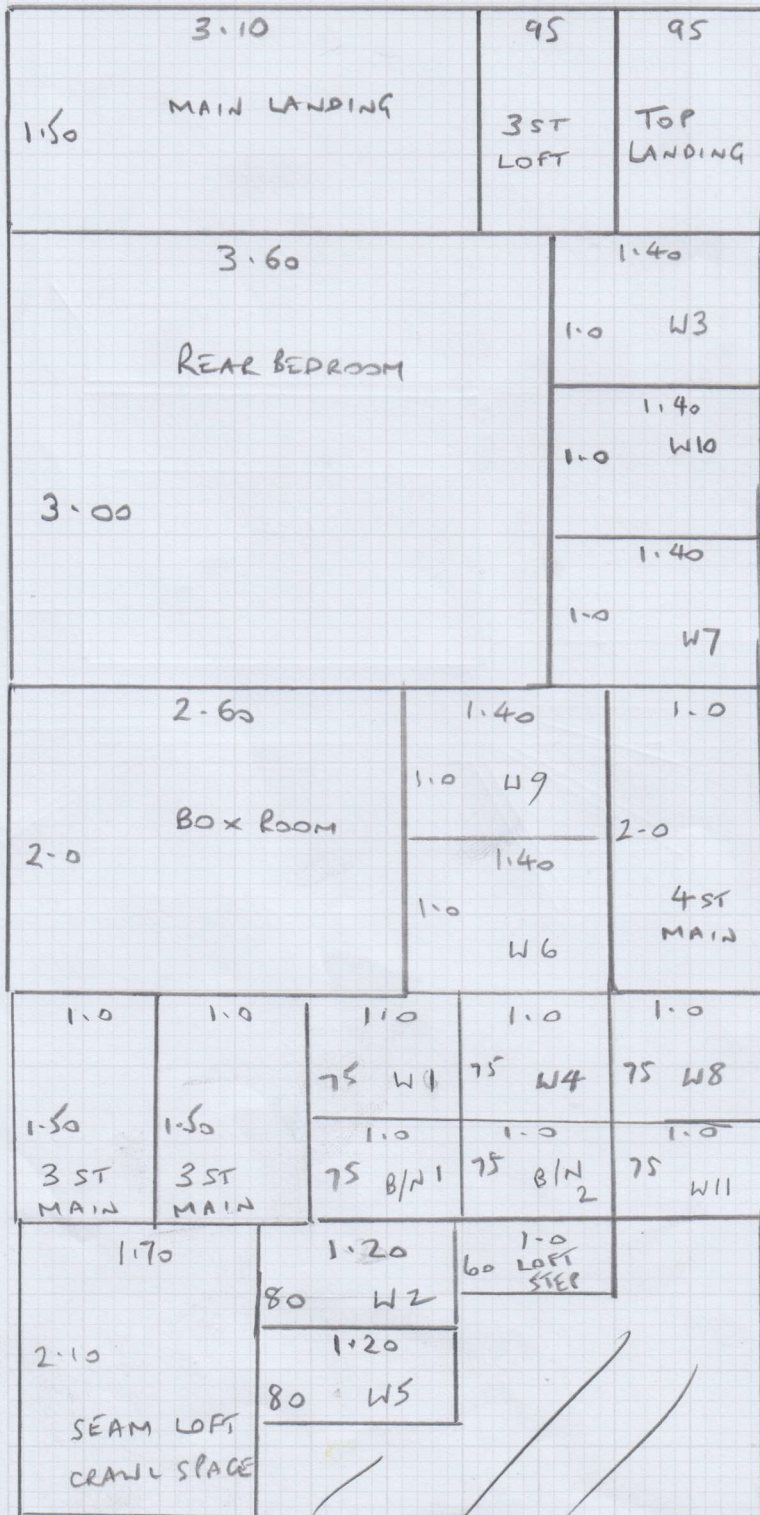 3.10
95
95
MAIN LANDING
1.50
3 ST
LOFT
TOP
LANDING
3.60
REAR BEDROOM
3.00
1.40
1.0 W3
1.40
1.0 W10
1.40
1.0 W7
2.60
BOX ROOM
2-0
1.40
1.0 W9
1.40
1.0
W6
1.0
2-0
4 ST
MAIN
1.0
1.50
3 ST
MAIN
1.0
1.50
3 ST
MAIN
1.0
75 W1
1.0
75 W4
1.0
75 W8
1.0
75 B/N 1
1.0
75 B/N
2
1.0
75 W11
1.70
2.10
SEAM LOFT
CRAWL SPACE
1.20
80 W2
1.20
80 W5
1-0
60 LOFT
STEP